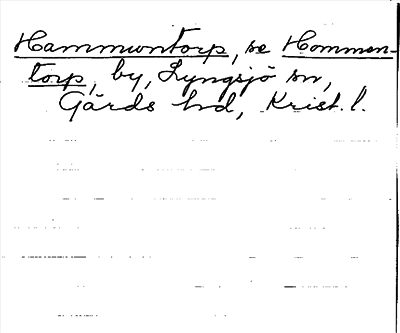 Hammuntorp, se Hommen-
torp, by, Lyngsjö sn,
Gärds hd, Krist. l.